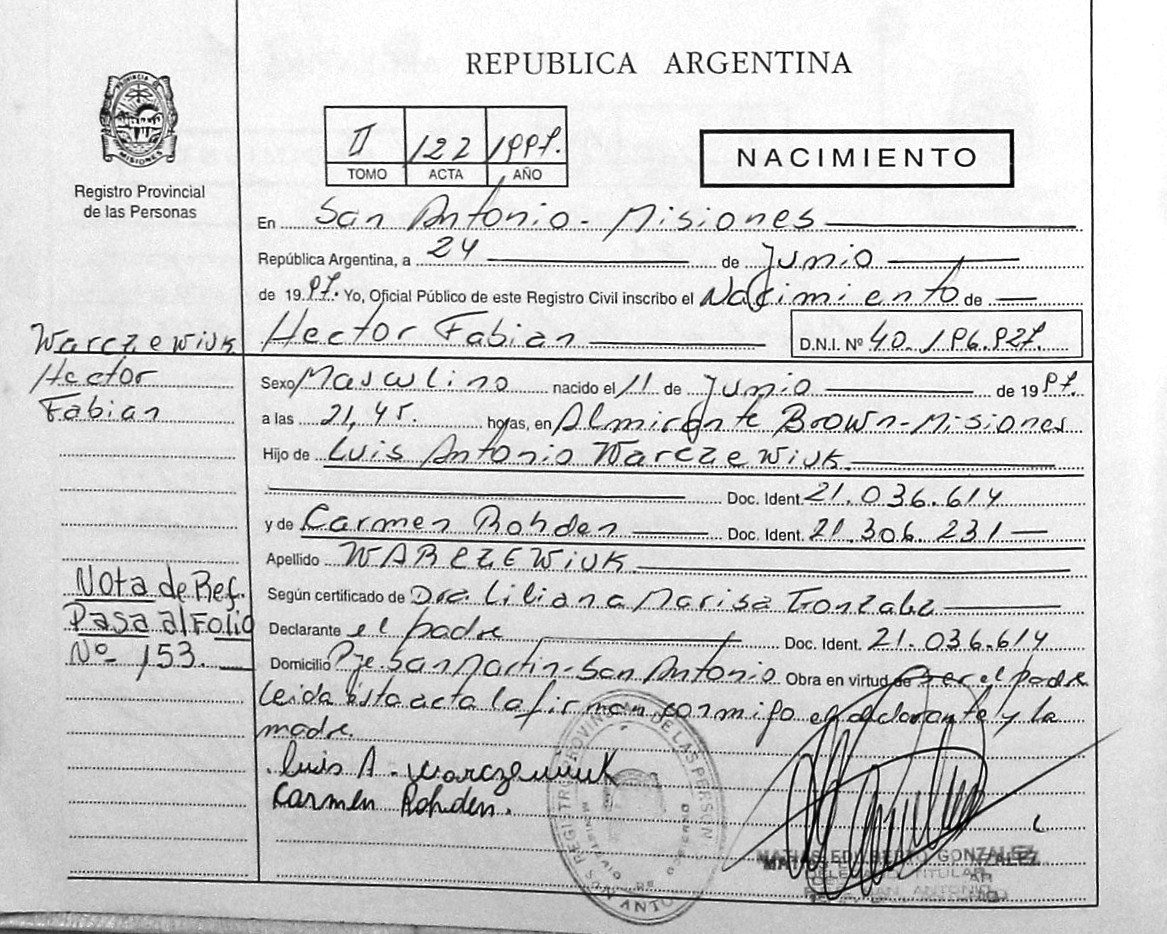 REPUBLICA ARGENTINA
PROVINCIA DE MISIONES
Registro Provincial
de las Personas
II 122 1997.
TOMO ACTA AÑO
NACIMIENTO
En San Antonio - Misiones
República Argentina, a 24 de Junio
de 1997. Yo, Oficial Público de este Registro Civil inscribo el Nacimiento de
Hector Fabian D.N.I. Nº 40.196.927.
Warczewiuk
Hector
Fabian
Sexo Masculino nacido el 11 de Junio de 1997.
a las 21,45. horas, en Almirante Brown-Misiones
Hijo de Luis Antonio Warczewiuk
Doc. Ident. 21.036.614
y de Carmen Rohden Doc. Ident. 21.306.231
Apellido WARCZEWIUK
Según certificado de Dra. Liliana Marisa Gonzalez
Declarante el padre Doc. Ident. 21.036.614
Domicilio Pje. San Martin-San Antonio Obra en virtud de Ser el padre
Leida esta acta la firman conmigo el declarante y la
madre.
Nota de Ref.
Pasa al Folio
Nº 153.
Luis A. Warczewiuk
Carmen Rohden.
REGISTRO PROVINCIAL DE LAS PERSONAS
MATIAS EDILBERTO GONZALEZ
DELEGADO TITULAR
SAN ANTONIO